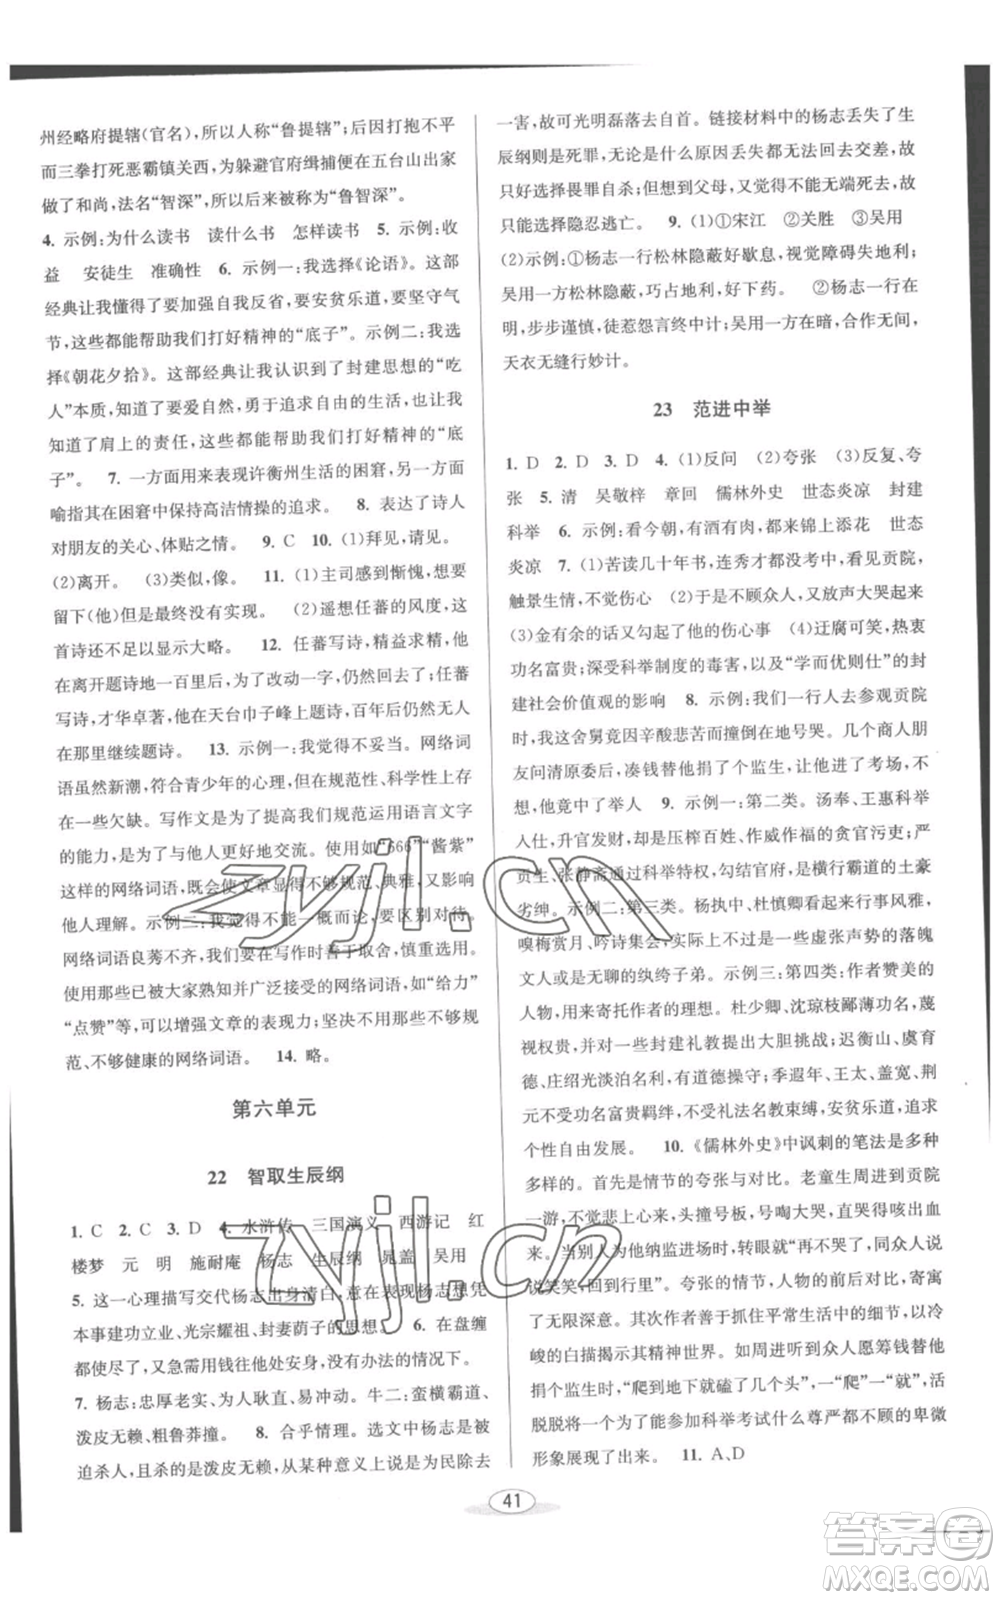 州经略府提辖(官名)，所以人称“鲁提辖”；后因打抱不平
而三拳打死恶霸镇关西，为躲避官府缉捕便在五台山出家
做了和尚，法名“智深”，所以人称“鲁智深”。
4. 示例：为什么读书 读什么书 怎样读书 5. 示例：收
益 安徒生 准确性 6. 示例一：我选择《论语》。这部
经典让我懂得了要加强自我反省，要安贫乐道，要坚守气
节，这些都能帮助我们打好精神的“底子”。示例二：我选
择《朝花夕拾》。这部经典让我认识到了封建思想的“吃
人”本质，知道了要爱自然，勇于追求自由的生活，也让我
知道了肩上的责任，这些都能帮助我们打好精神的“底
子”。 7. 一方面用来表现许衡州生活的困窘，另一方面
喻指其在困窘中保持高洁情操的追求。 8. 表达了诗人
对朋友的关心、体贴之情。 9. C 10. (1)拜见，请见。
(2)离开。 (3)类似，像。 11. (1)主司感到惭愧，想要
留下(他)但是最终没有实现。 (2)遥想任蕃的风度，这
首诗还不足以显示出大略。 12. 任蕃写诗，精益求精，他
在离开题诗地一百里后，为了改动一字，仍然返回；任蕃
写诗，才华卓著，他在天台巾子峰上题诗，百年后仍然无人
在那里继续题诗。 13. 示例一：我觉得不妥当。网络词
语虽然新潮，符合青少年的心理，但其规范性、科学性还存
在一些欠缺。写作文是为了让我们规范地运用语言文字
的能力，为了与他人更好地交流。使用如“666”“酱紫”
这样的网络词语，既会使文章显得不够规范、典雅，又难让
他人理解。示例二：我觉得不能一概而论，要区别对待。
网络词语良莠不齐，我们在写作时善于取舍，慎重选用。
使用那些已被大家熟知并广泛接纳的网络词语，如“给力”
“点赞”等，可以增强文章的表现力；坚决不用其他不够规
范、不够健康的网络词语。 14. 略。
第六单元
22 智取生辰纲
1. C 2. C 3. D 4. 水浒传 三国演义 西游记 红
楼梦 元 明 施耐庵 杨志 生辰纲 晁盖 吴用
5. 这一心理描写交代杨志出身清白，尤其表现杨志想凭
本事建功立业、光宗耀祖、封妻荫子的思想。 6. 在盘缠
都使尽了，又急需用钱往他处安身，没有办法的情况下。
7. 杨志：忠厚老实、为人耿直、易冲动。牛二：蛮横霸道、
泼皮无赖、粗鲁莽撞。 8. 合乎情理。选文中杨志是被
迫杀人，且杀的是泼皮无赖，从某种意义上讲是为民除去
一害，故可光明磊落去自首。链接材料中的杨志丢失了生
辰纲则是死罪，无论是什么原因丢失都无法回去交差，故
只好选择畏罪自杀；但想到父母，又觉得不能无端死去，故
只能选择隐忍逃亡。 9. (1)①宋江 ②关胜 ③吴用
(2)示例：①杨志一行松林隐蔽好歇息，视觉障碍失地利；
吴用一方松林隐蔽，巧占地利，好下药。 ②杨志一行在
明，步步谨慎，徒惹怨言终中计；吴用一方在暗，合作无间，
天衣无缝行妙计。
23 范进中举
1. D 2. D 3. D 4. (1)反问 (2)夸张 (3)反复、夸
张 5. 清 吴敬梓 章回 儒林外史 世态炎凉 封建
科举 6. 示例：看今朝，有酒有肉，都来锦上添花 世态
炎凉 7. (1)苦读几十年书，连秀才都没考中，见到贡院，
触景生情，不觉伤心 (2)于是不顾众人，又放声大哭起来
(3)金有余的话又勾起了他的伤心事 (4)迂腐可笑，热衷
功名富贵；深受科举制度的毒害，以及“学而优则仕”的封
建社会价值观的影响 8. 示例：我们一行人去参观贡院
时，我这舍舅竟因辛酸悲苦而撞倒在地号哭。几个商人朋
友问清原委后，凑钱替他捐了个监生，让他进了考场，不曾
想，他竟中了举人 9. 示例一：第二类。汤奉、王惠科举
入仕，升官发财，却是压榨百姓、作威作福的贪官污吏；严
贡生、张静斋通过科举特权，勾结官府，是横行霸道的土豪
劣绅。示例二：第三类。杨执中、杜慎卿等喜好附弄风雅，
嗅梅赏月、吟诗集会，实际上是一些虚张声势的落魄
文人或者无能的纨绔子弟。示例三：第四类：作者赞美的
人物，他们代表作者的理想。杜少卿、沈琼枝鄙薄功名，蔑
视权贵，对一些封建礼教提出大胆挑战；迟衡山、虞育
德、庄绍光淡泊名利，有道德操守；季遐年、王太、盖宽、荆
元不受功名富贵羁绊，不被名教束缚，安贫乐道，追求
个性自由发展。 10. 《儒林外史》中讽刺的笔法是多种
多样的。首先是情节的夸张与对比。老童生周进到贡院
一游，不觉悲上心来，头撞号板，号啕大哭，哭得死去活
来。当别人劝他纳监进场时，就“再不哭了，同众人说
说笑笑，回到行里”。夸张的情节，人物的前后对比，寄寓
了无限深意。其次作者善于抓住平常生活中的细节，以冷
峻的白描揭示其精神世界。周进听到众人愿意筹钱给他
捐个监生，“爬到地下就磕了几个头”，一“爬”一“就”，活
脱脱的一个为了能参加科举考试什么尊严都不顾的卑微
形象展现了出来。 11. A、D
41
zyjl.cn
zyjl.cn
答案圈
MXQE.COM